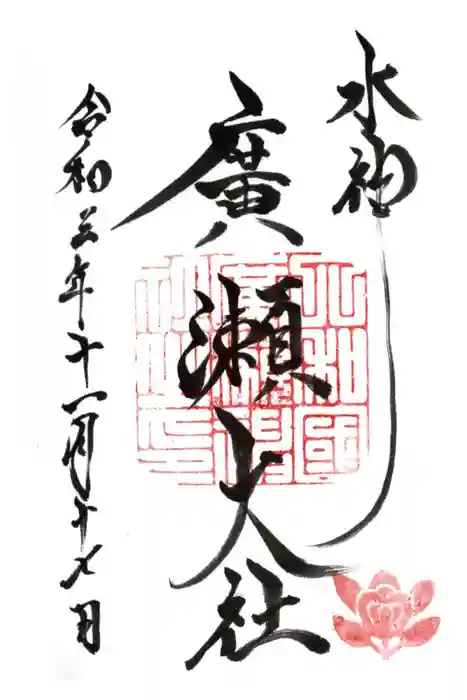 水神
廣瀬大社
令和三年十一月十七日